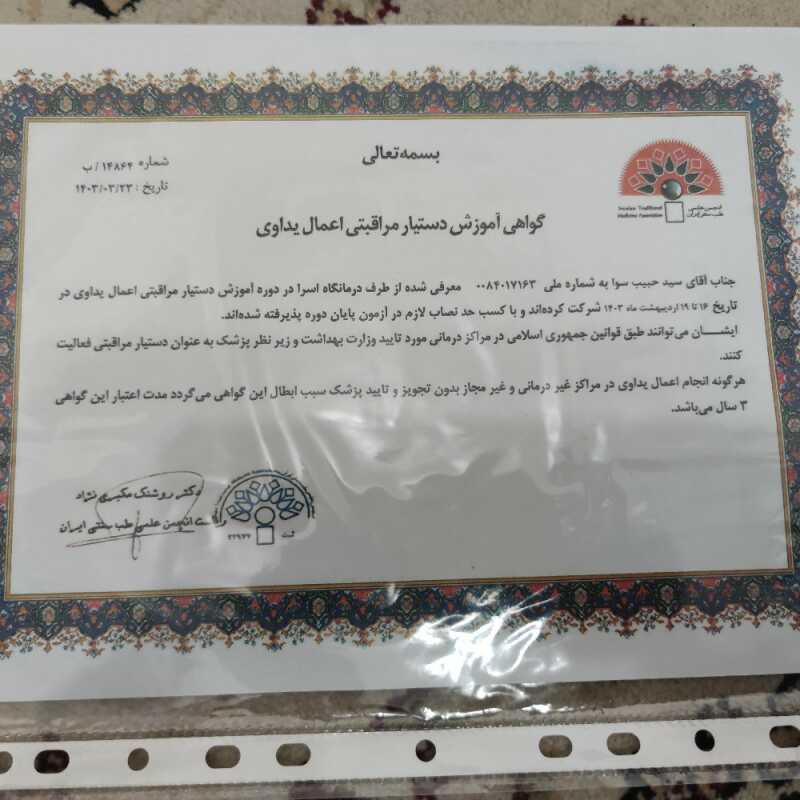 بسمه‌تعالی
شماره ۱۴۸۶۴ / ب
تاریخ : ۱۴۰۳/۰۳/۲۳
انجمن علمی
طب سنتی ایران
Iranian Traditional
Medicine Association
گواهی آموزش دستیار مراقبتی اعمال یداوی
جناب آقای سید حبیب سوا به شماره ملی ۰۰۸۴۰۱۷۱۶۳ معرفی شده از طرف درمانگاه اسرا در دوره آموزش دستیار مراقبتی اعمال یداوی در
تاریخ ۱۶ تا ۱۹ اردیبهشت ماه ۱۴۰۳ شرکت کرده‌اند و با کسب حد نصاب لازم در آزمون پایان دوره پذیرفته شده‌اند.
ایشـــان می‌توانند طبق قوانین جمهوری اسلامی در مراکز درمانی مورد تایید وزارت بهداشت و زیر نظر پزشک به عنوان دستیار مراقبتی فعالیت
کنند.
هرگونه انجام اعمال یداوی در مراکز غیر درمانی و غیر مجاز بدون تجویز و تایید پزشک سبب ابطال این گواهی می‌گردد مدت اعتبار این گواهی
۳ سال می‌باشد.
دکتر روشنک مکبری نژاد
ریاست انجمن علمی طب سنتی ایران
ثبت